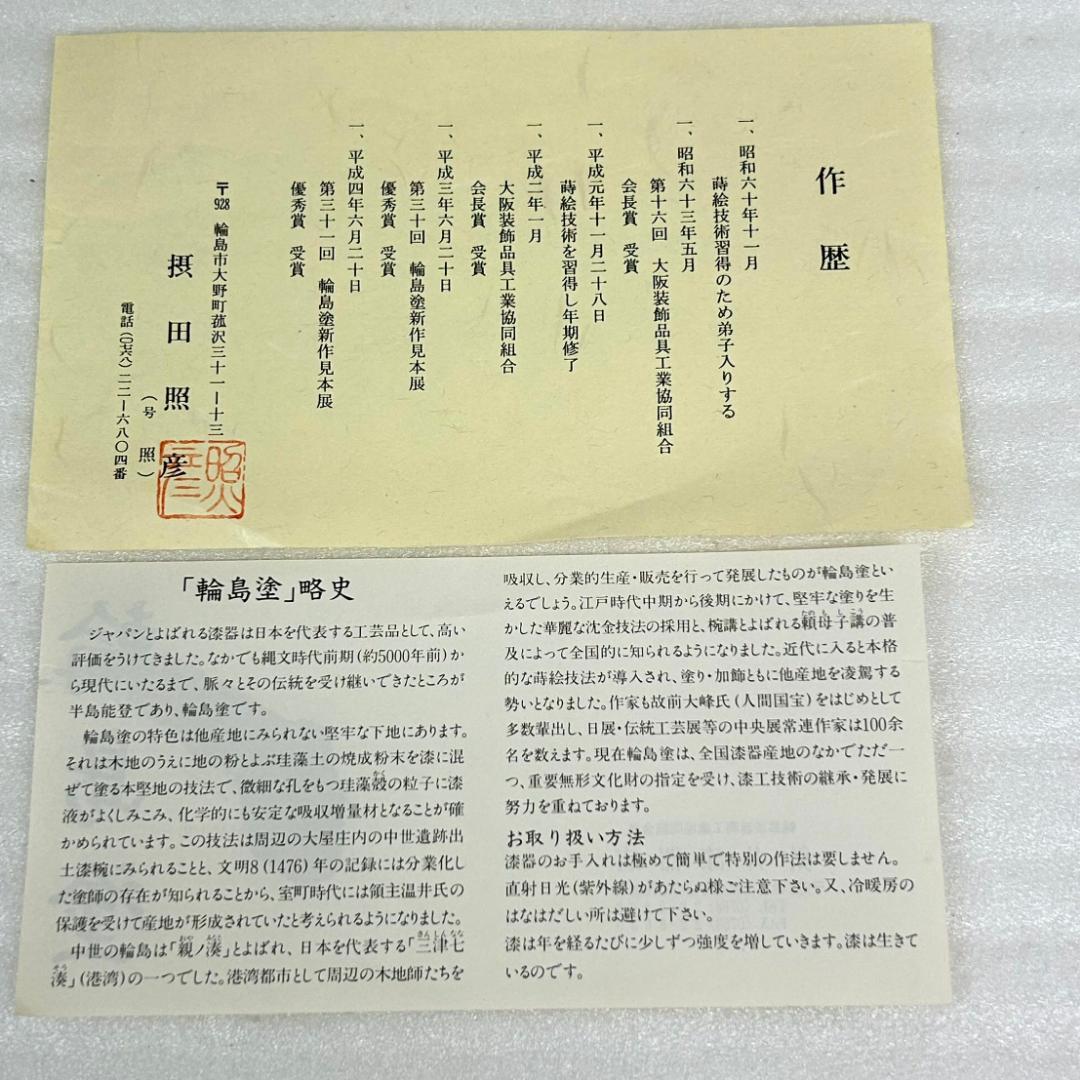 作歴
一、昭和六十年十一月
蒔絵技術習得のため弟子入りする
一、昭和六十三年五月
第十六回 大阪装飾品具工業協同組合
会長賞 受賞
一、平成元年十一月二十八日
蒔絵技術を習得し年期修了
一、平成二年一月
大阪装飾品具工業協同組合
会長賞 受賞
一、平成三年六月二十日
第三十回 輪島塗新作見本展
優秀賞 受賞
一、平成四年六月二十日
第三十一回 輪島塗新作見本展
優秀賞 受賞
〒928 輪島市大野町菰沢三十一ー十三
摂田照彦
(号 照)
電話(〇七六八)二二ー六八〇四番
「輪島塗」略史
ジャパンとよばれる漆器は日本を代表する工芸品として、高い
評価をうけてきました。なかでも縄文時代前期(約5000年前)か
ら現代にいたるまで、脈々とその伝統を受け継いできたところが
半島能登であり、輪島塗です。
輪島塗の特色は他産地にみられない堅牢な下地にあります。
それは木地のうえに地の粉とよぶ珪藻土の焼成粉末を漆に混
ぜて塗る本堅地の技法で、微細な孔をもつ珪藻殻の粒子に漆
液がよくしみこみ、化学的にも安定な吸収増量材となることが確
かめられています。この技法は周辺の大屋庄内の中世遺跡出
土漆椀にみられることと、文明8(1476)年の記録には分業化し
た塗師の存在が知られることから、室町時代には領主温井氏の
保護を受けて産地が形成されていたと考えられるようになりました。
中世の輪島は「親ノ湊」とよばれ、日本を代表する「三津七
湊」(港湾)の一つでした。港湾都市として周辺の木地師たちを
吸収し、分業的生産・販売を行って発展したものが輪島塗とい
えるでしょう。江戸時代中期から後期にかけて、堅牢な塗りを生
かした華麗な沈金技法の採用と、椀講とよばれる頼母子講の普
及によって全国的に知られるようになりました。近代に入ると本格
的な蒔絵技法が導入され、塗り・加飾ともに他産地を凌駕する
勢いとなりました。作家も故前大峰氏(人間国宝)をはじめとして
多数輩出し、日展・伝統工芸展等の中央展常連作家は100余
名を数えます。現在輪島塗は、全国漆器産地のなかでただ一
つ、重要無形文化財の指定を受け、漆工技術の継承・発展に
努力を重ねております。
お取り扱い方法
漆器のお手入れは極めて簡単で特別の作法は要しません。
直射日光(紫外線)があたらぬ様ご注意下さい。又、冷暖房の
はなはだしい所は避けて下さい。
漆は年を経るたびに少しずつ強度を増していきます。漆は生きて
いるのです。